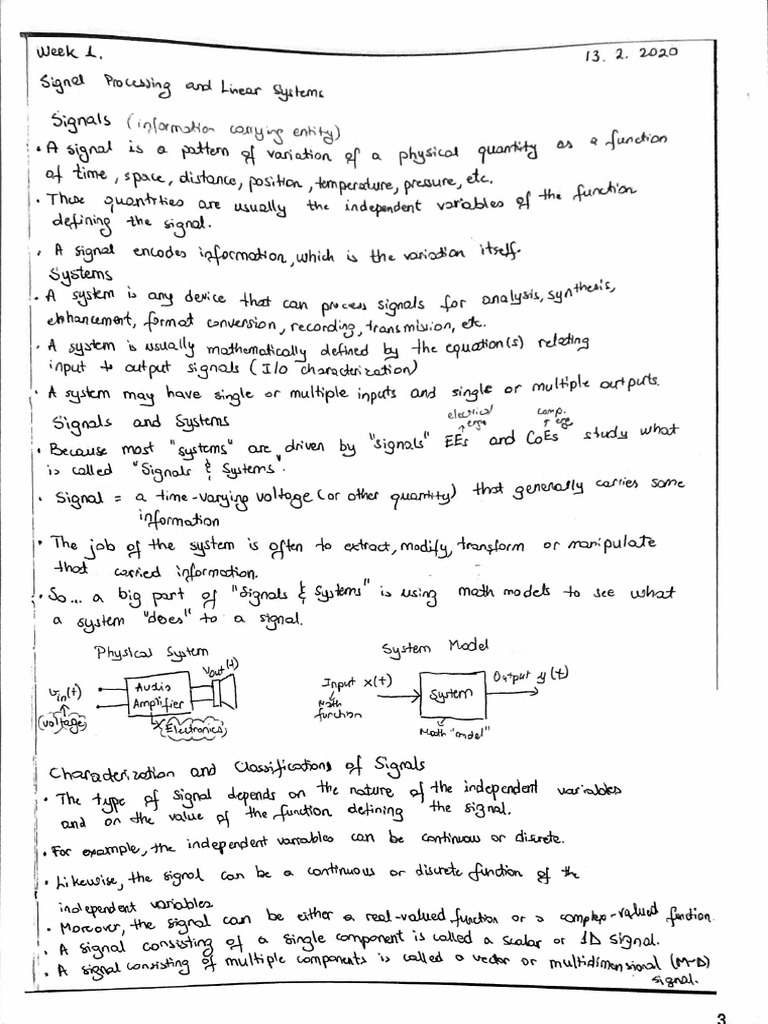 Week 1.
13. 2. 2020
Signal Processing and Linear Systems
Signals (information carrying entity)
• A signal is a pattern of variation of a physical quantity as a function
of time, space, distance, position, temperature, pressure, etc.
• These quantities are usually the independent variables of the function
defining the signal.
• A signal encodes information, which is the variation itself.
Systems
• A system is any device that can process signals for analysis, synthesis,
enhancement, format conversion, recording, transmission, etc.
• A system is usually mathematically defined by the equation(s) relating
input to output signals (I/o characterization)
• A system may have single or multiple inputs and single or multiple outputs.
Signals and Systems
electrical
comp.
• Because most "systems" are driven by "signals" EEs and CoEs study what
is called "Signals & Systems".
• Signal = a time-varying voltage (or other quantity) that generally carries some
information
• The job of the system is often to extract, modify, transform or manipulate
that carried information.
• So... a big part of "Signals & Systems" is using math models to see what
a system "does" to a signal.
Physical System
System Model
Vin(t)
(voltage)
Audio
Amplifier
Vout(t)
Electronics
Input x(t)
Math
function
System
Math "model"
Output y(t)
Characterization and Classifications of Signals
• The type of signal depends on the nature of the independent variables
and on the value of the function defining the signal.
• For example, the independent variables can be continuous or discrete.
• Likewise, the signal can be a continuous or discrete function of the
independent variables
• Moreover, the signal can be either a real-valued function or a complex-valued function.
• A signal consisting of a single component is called a scalar or 1D signal.
• A signal consisting of multiple components is called a vector or multidimensional (M-D)
signal.
3